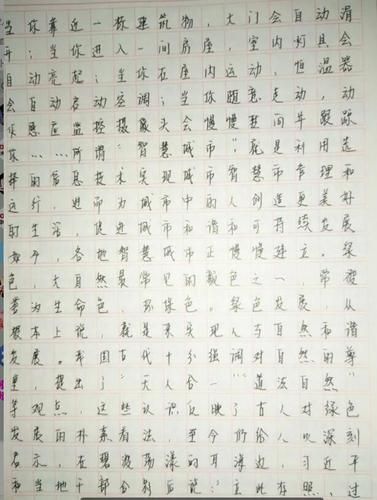 当你靠近一栋建筑物，大门会自动滑
开；当你进入一间房屋，室内灯具会
自动亮起；当你在屋内运动，恒温器
会自动启动空调；当你随意走动，动
作感应监控摄像头会慢慢转向并跟踪
你……所谓“智慧城市”，就是利用先
进的信息技术实现城市智慧市管理和
运行，进而为城市中的人创造更美好
的生活，促进城市和谐和可持续发展
如今，各地智慧城市正慢慢建立。绿
色，大自然最常见的颜色之一，常被
誉为生命色，环保色。绿色发展，从
根本上说，就是来实现人与自然和谐
发展。我国古代十分强调对自然的尊
重，提出了“天人合一”“道法自然”
等观点，这些认识反映了古人对绿色
发展的朴素看法，至今仍给人以深刻
启示，在碧波荡漾的耳海边，习近平
和当地干部合影后说：立此存照，过